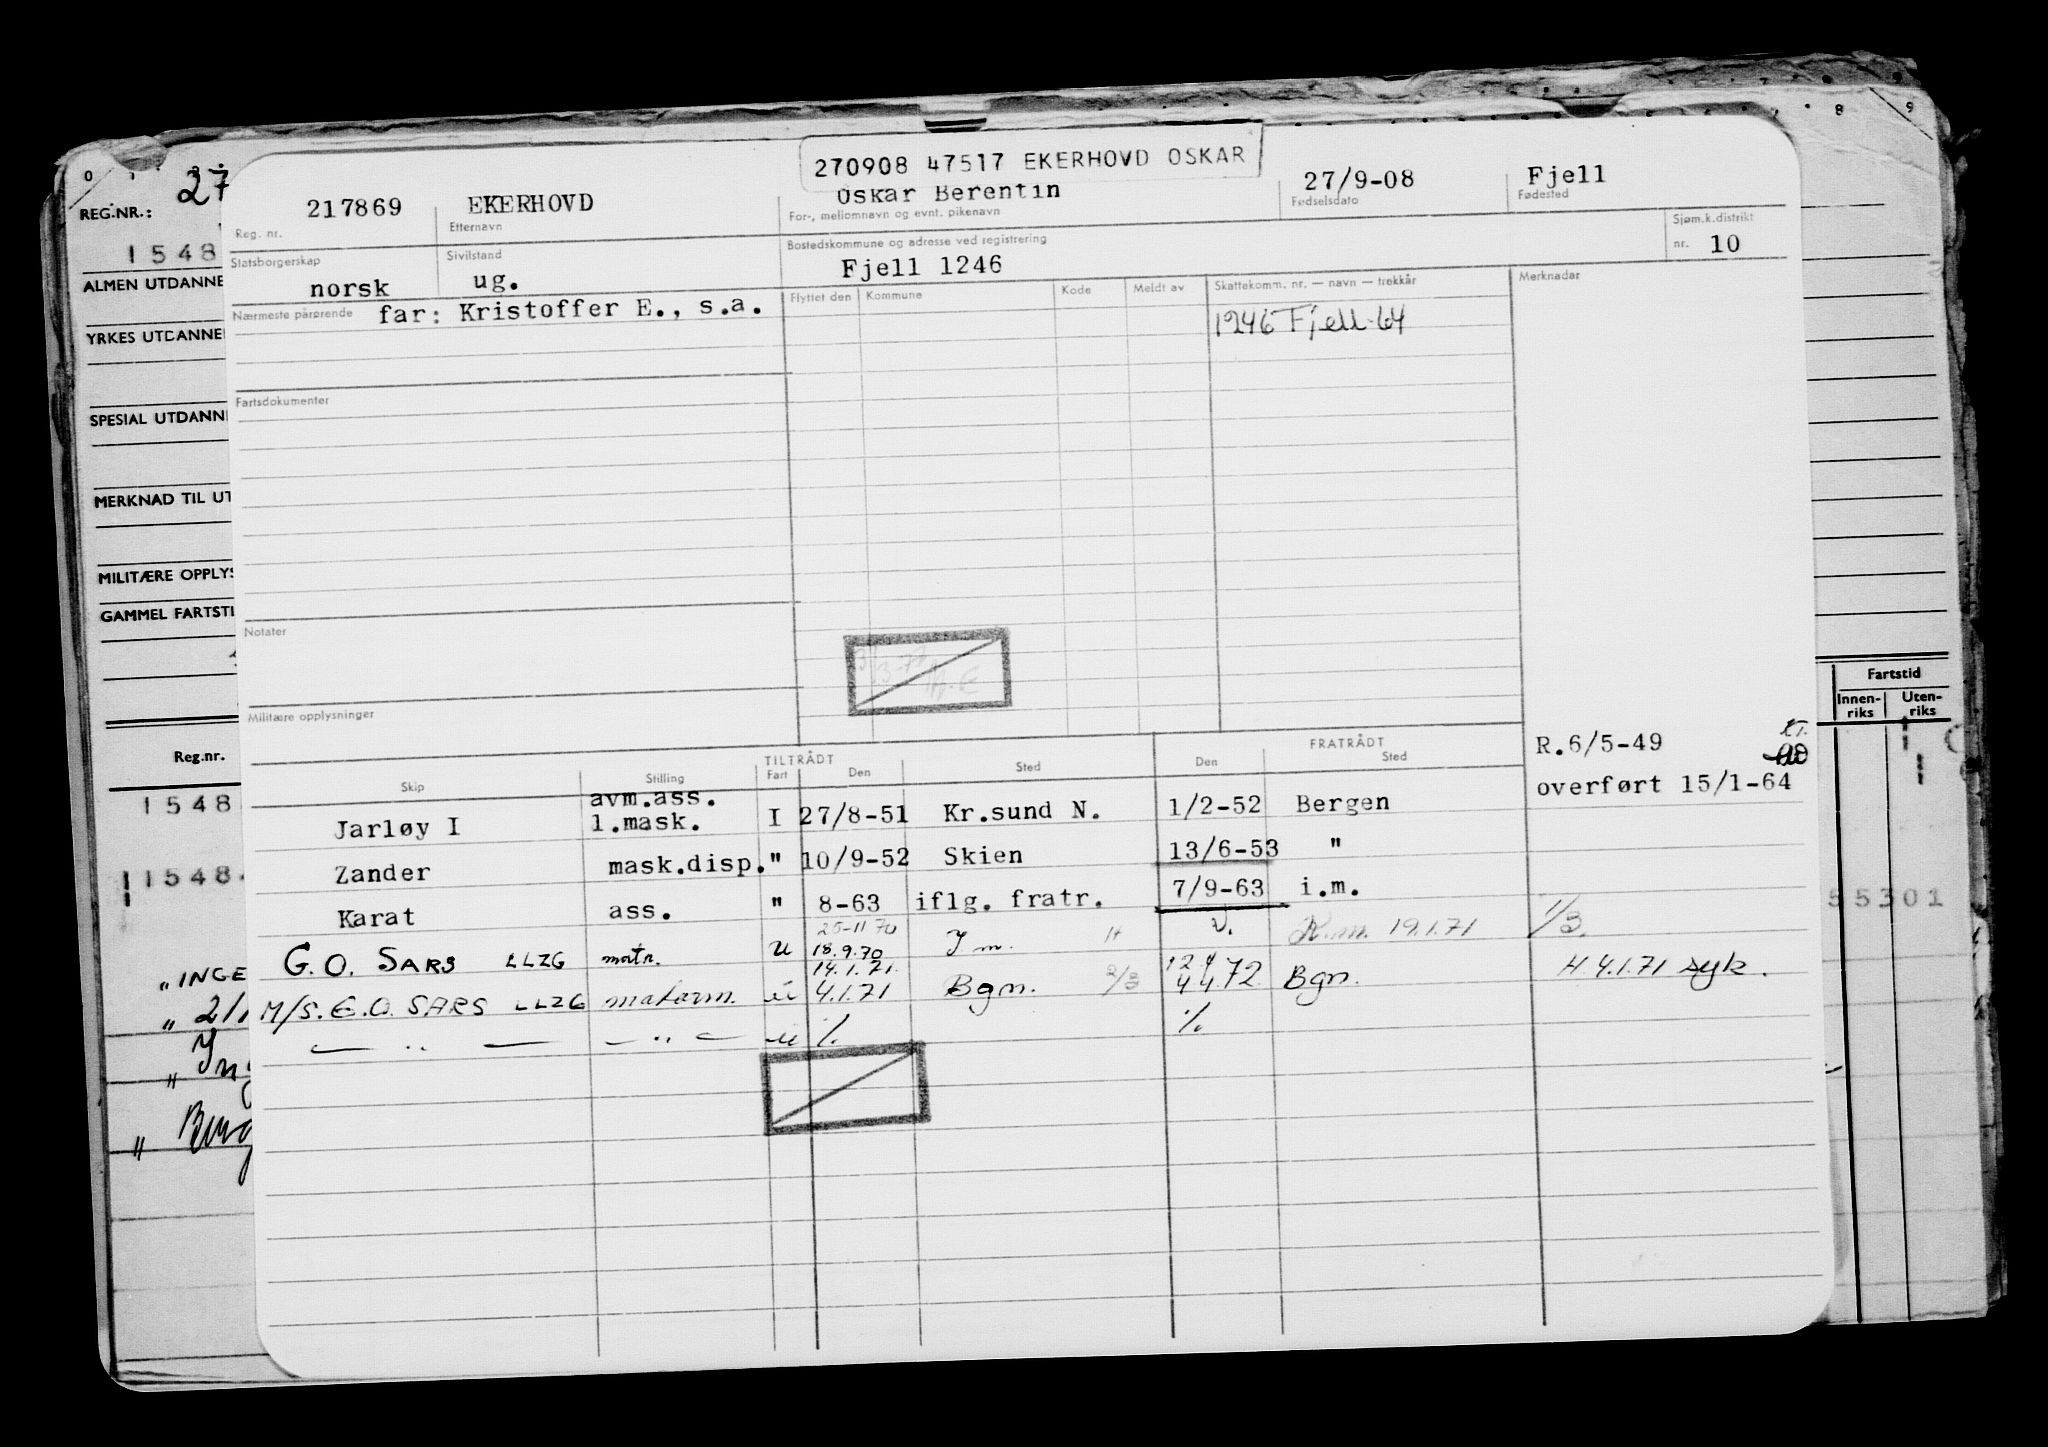 0 1 7 8 9 9
REG.NR.: 27
1548
ALMEN UTDANNE
YRKES UTDANNE
SPESIAL UTDANN
MERKNAD TIL UT
MILITÆRE OPPLYS
GAMMEL FARTSTI
Reg.nr.
1548
11548
"INGE
" 2/1
" Ing
" Berg
270908 47517 EKERHOVD OSKAR
217869 EKERHOVD Oskar Berentin 27/9-08 Fjell
Reg. nr. Etternavn For-, mellomnavn og evnt. pikenavn Fødselsdato Fødested
Statsborgerskap Sivilstand Bostedskommune og adresse ved registrering Sjøm.k.distrikt
norsk ug. Fjell 1246 nr. 10
Nærmeste pårørende far: Kristoffer E., s.a. Flyttet den Kommune Kode Meldt av Skattekomm. nr. — navn — trekkår Merknadar
1246 Fjell-64
Fartsdokumenter
Notater
Militære opplysninger
TILTRÅDT FRATRÅDT
Skip Stilling Fart Den Sted Den Sted
R.6/5-49
overført 15/1-64
avm.ass.
Jarløy I 1.mask. I 27/8-51 Kr.sund N. 1/2-52 Bergen
Zander mask.disp. " 10/9-52 Skien 13/6-53 "
Karat ass. " 8-63 iflg. fratr. 7/9-63 i.m.
25-11 70
G.O. SARS LLZG matr. U 18.9.70 I m. H v. R.m. 19.1.71 1/3.
14.1.71.
M/S. G.O. SARS LLZG matarm. u 4.1.71 Bgn. 2/3 4 4.72. Bgn. H. 4.1.71 syk.
— " — — " — u ./. ./.
Fartstid
Innen-riks Uten-riks
55301